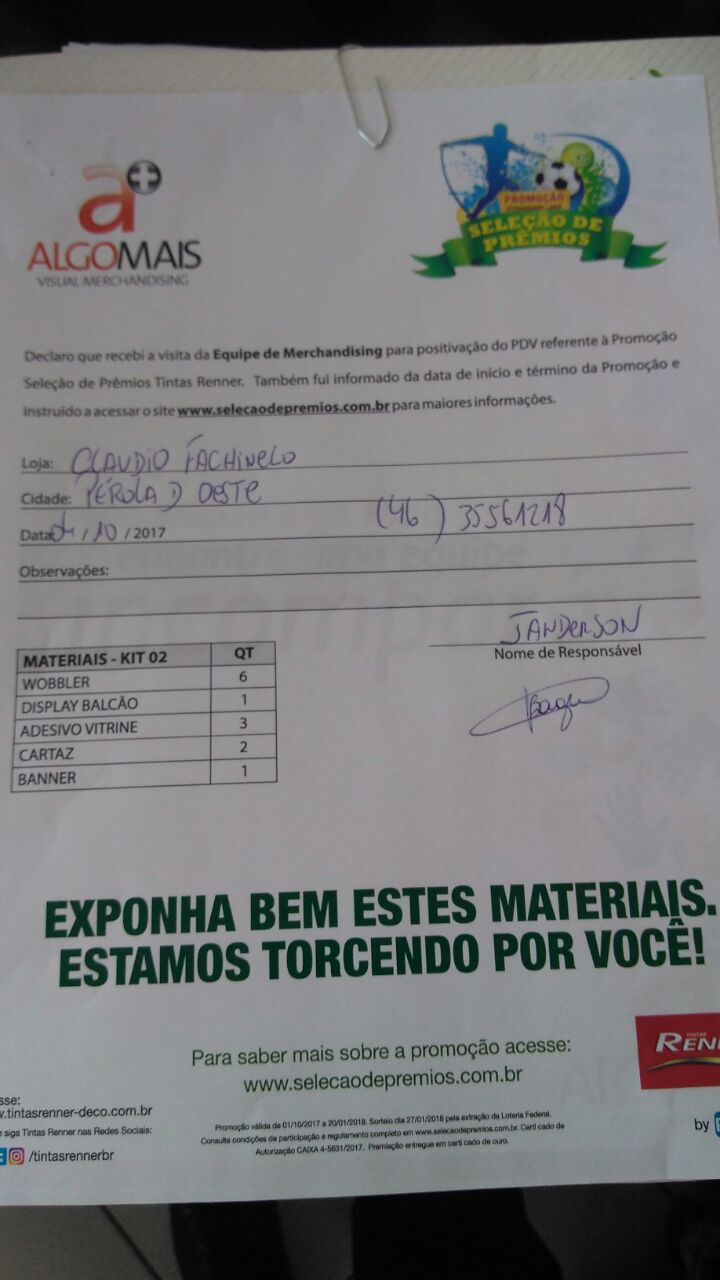 a+
ALGOMAIS
VISUAL MERCHANDISING
PROMOÇÃO
SELEÇÃO DE
PRÊMIOS
Declaro que recebi a visita da Equipe de Merchandising para positivação do PDV referente à Promoção
Seleção de Prêmios Tintas Renner. Também fui informado da data de início e término da Promoção e
instruído a acessar o site www.selecaodepremios.com.br para maiores informações.
Loja: CLAUDIO FACHINELO
Cidade: PÉROLA D OESTE
Data: /10 / 2017 (46) 35561218
Observações:
JANDERSON
Nome de Responsável
MATERIAIS - KIT 02 QT
WOBBLER 6
DISPLAY BALCÃO 1
ADESIVO VITRINE 3
CARTAZ 2
BANNER 1
EXPONHA BEM ESTES MATERIAIS.
ESTAMOS TORCENDO POR VOCÊ!
Para saber mais sobre a promoção acesse:
www.selecaodepremios.com.br
TINTAS
RENN
sse:
w.tintasrenner-deco.com.br
e siga Tintas Renner nas Redes Sociais:
/tintasrennerbr
Promoção válida de 01/10/2017 a 20/01/2018. Sorteio dia 27/01/2018 pela extração da Loteria Federal.
Consulte condições de participação e regulamento completo em www.selecaodepremios.com.br. Certi cado de
Autorização CAIXA 4-5631/2017. Premiação entregue em certi cado de ouro.
by